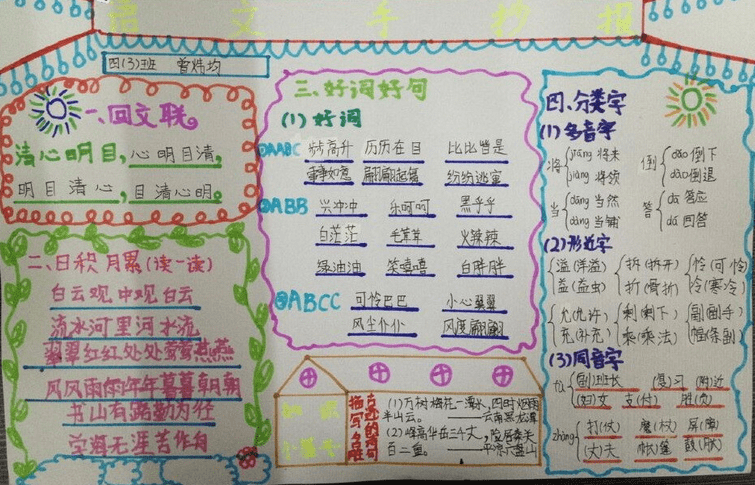 语文手抄报
四(3)班 曾炜均
一、回文联
清心明目,心明目清,
明目清心,目清心明。
二、日积月累(读一读)
白云观中观白云
流水河里河水流
翠翠红红处处莺莺燕燕
风风雨雨年年暮暮朝朝
书山有路勤为径
学海无涯苦作舟
三、好词好句
(1)好词
①AABC 步步高升 历历在目 比比皆是
事事如意 翩翩起舞 纷纷逃窜
②ABB 兴冲冲 乐呵呵 黑乎乎
白茫茫 毛茸茸 火辣辣
绿油油 笑嘻嘻 白胖胖
③ABCC 可怜巴巴 小心翼翼
风尘仆仆 风度翩翩
描写名胜古迹的诗句
(1)万树梅花一潭水,四时烟雨
半山云。——云南黑龙潭
(2)峰高华岳三千丈,险居秦关
百二重。——平凉六盘山
四、分类字
(1)多音字
将 jiāng 将来
jiàng 将领
倒 dǎo 倒下
dào 倒退
当 dāng 当然
dàng 当铺
答 dā 答应
dá 回答
(2)形近字
溢(洋溢) 拆(拆开) 怜(可怜)
益(益虫) 折(骨折) 冷(寒冷)
允(允许) 剩(剩下) 副(副手)
充(补充) 乘(乘法) 幅(条副)
(3)同音字
fù (副)班长 (复)习 (附)近
(妇)女 支(付) 胜(负)
zhàng 打(仗) 魔(杖) 屏(障)
(丈)夫 (帐)篷 鼓(胀)